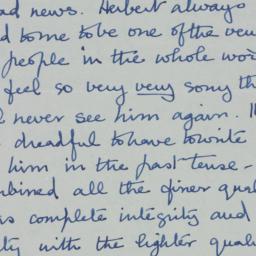 ad news. Herbert always
d to me to be one of the very
people in the whole wor
feel so very very sorry th
never see him again. It
dreadful to have to write
him in the past tense -
mbined all the finer qual
as complete integrity and
ty with the lighter quali